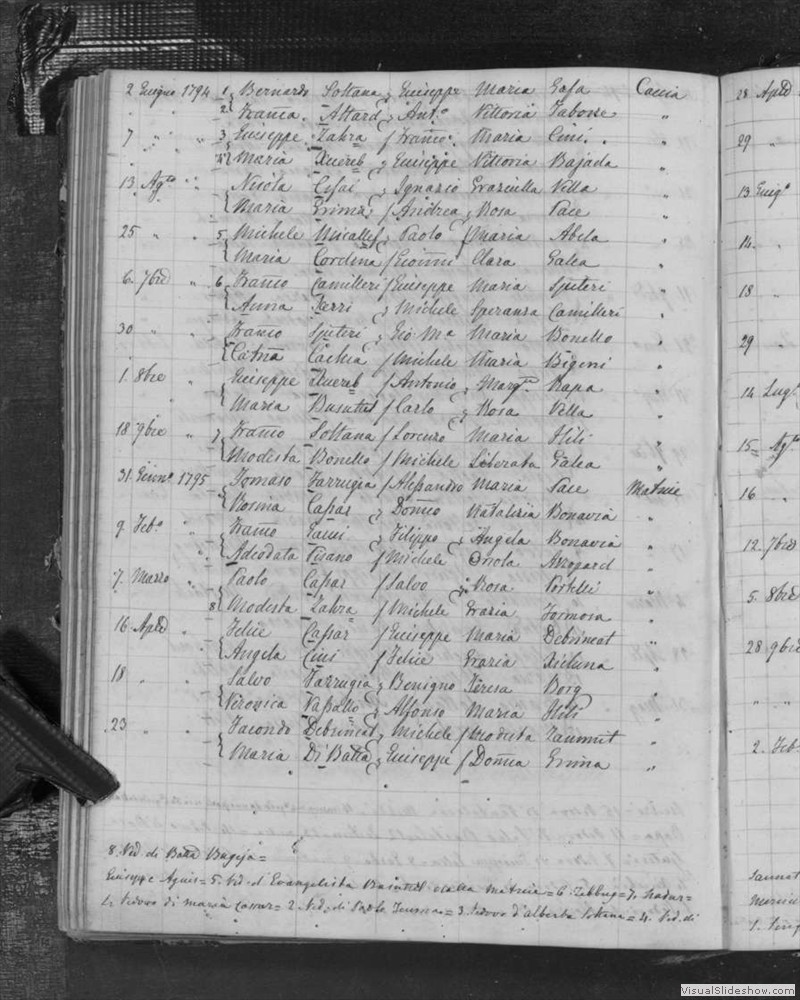 2 Giugno 1794 1 Bernardo Sottana Giuseppe Maria Gafa Caccia
2 Franca Attard Ant.o Vittoria Tabone "
7 " " 3 Giuseppe Zahra / Franco. Maria Cini. "
4 Maria Xuereb Giuseppe Vittoria Bajada "
13 Ag.to " Nicola Ignazio Graziulla Villa "
Maria Grima / Andrea Rosa Pace "
25 " " 5 Michele Micallef Paolo / Maria Abela "
Maria Cordina / Gionni Clara Galea "
6. 7bre " 6 Franco Camilleri / Giuseppe Maria Spiteri "
Anna Zerri Michele Speranza Camilleri "
30 " " Franco Spiteri Gio Ma Maria Bonello "
Catna Cachia / Michele Maria Bigeni "
1. 8bre " Giuseppe Xuereb / Antonio Marg.ta Rapa "
Maria Busuttil / Carlo Rosa Vella "
18 9bre " 7 Franco Sottana / Lorenzo Maria Hili "
Modesta Bonello / Michele Liberata Galea "
31 Genn.o 1795 Tomaso Farrugia / Alessandro Maria Pace Matrice
Rosina Cassar Domco Natalizia Bonavia "
9. Feb.o " Franco Filippo Angela Bonavia "
Adeodata Pisano / Michele Orsola Azzopard "
7. Marzo " Paolo Cassar / Salvo Rosa Portelli "
8 Modesta Zahra / Michele Grazia Formosa "
16 Aple " Felice Cassar / Giuseppe Maria Debrincat "
Angela Cini / Felice Grazia Xicluna "
18 " " Salvo Farrugia Benigno Teresa Borg "
Veronica Vassallo Alfonso Maria Hili "
23 " " Facondo Debrincat Michele / Modesta Zammit "
Maria Di Batta Giuseppe / Domca Grima "
8. Ved. di Batta Bugeja =
Giuseppe Agius = 5. Ved. d' Evangelista dalla Matrice = 6. Zebbug = 7.
1. Vedovo di Maria Cassar = 2. Ved. di Paolo = 3. Vedovo d'alberta Sottana = 4. Ved. di
28 Aple
29 "
13 Giug.o
14. "
18 "
29 "
14 Lug.o
15 = Ag.to
16 "
12. 7bre
5. 8bre
28 9bre
" "
2. Feb.
VisualSlideshow.com